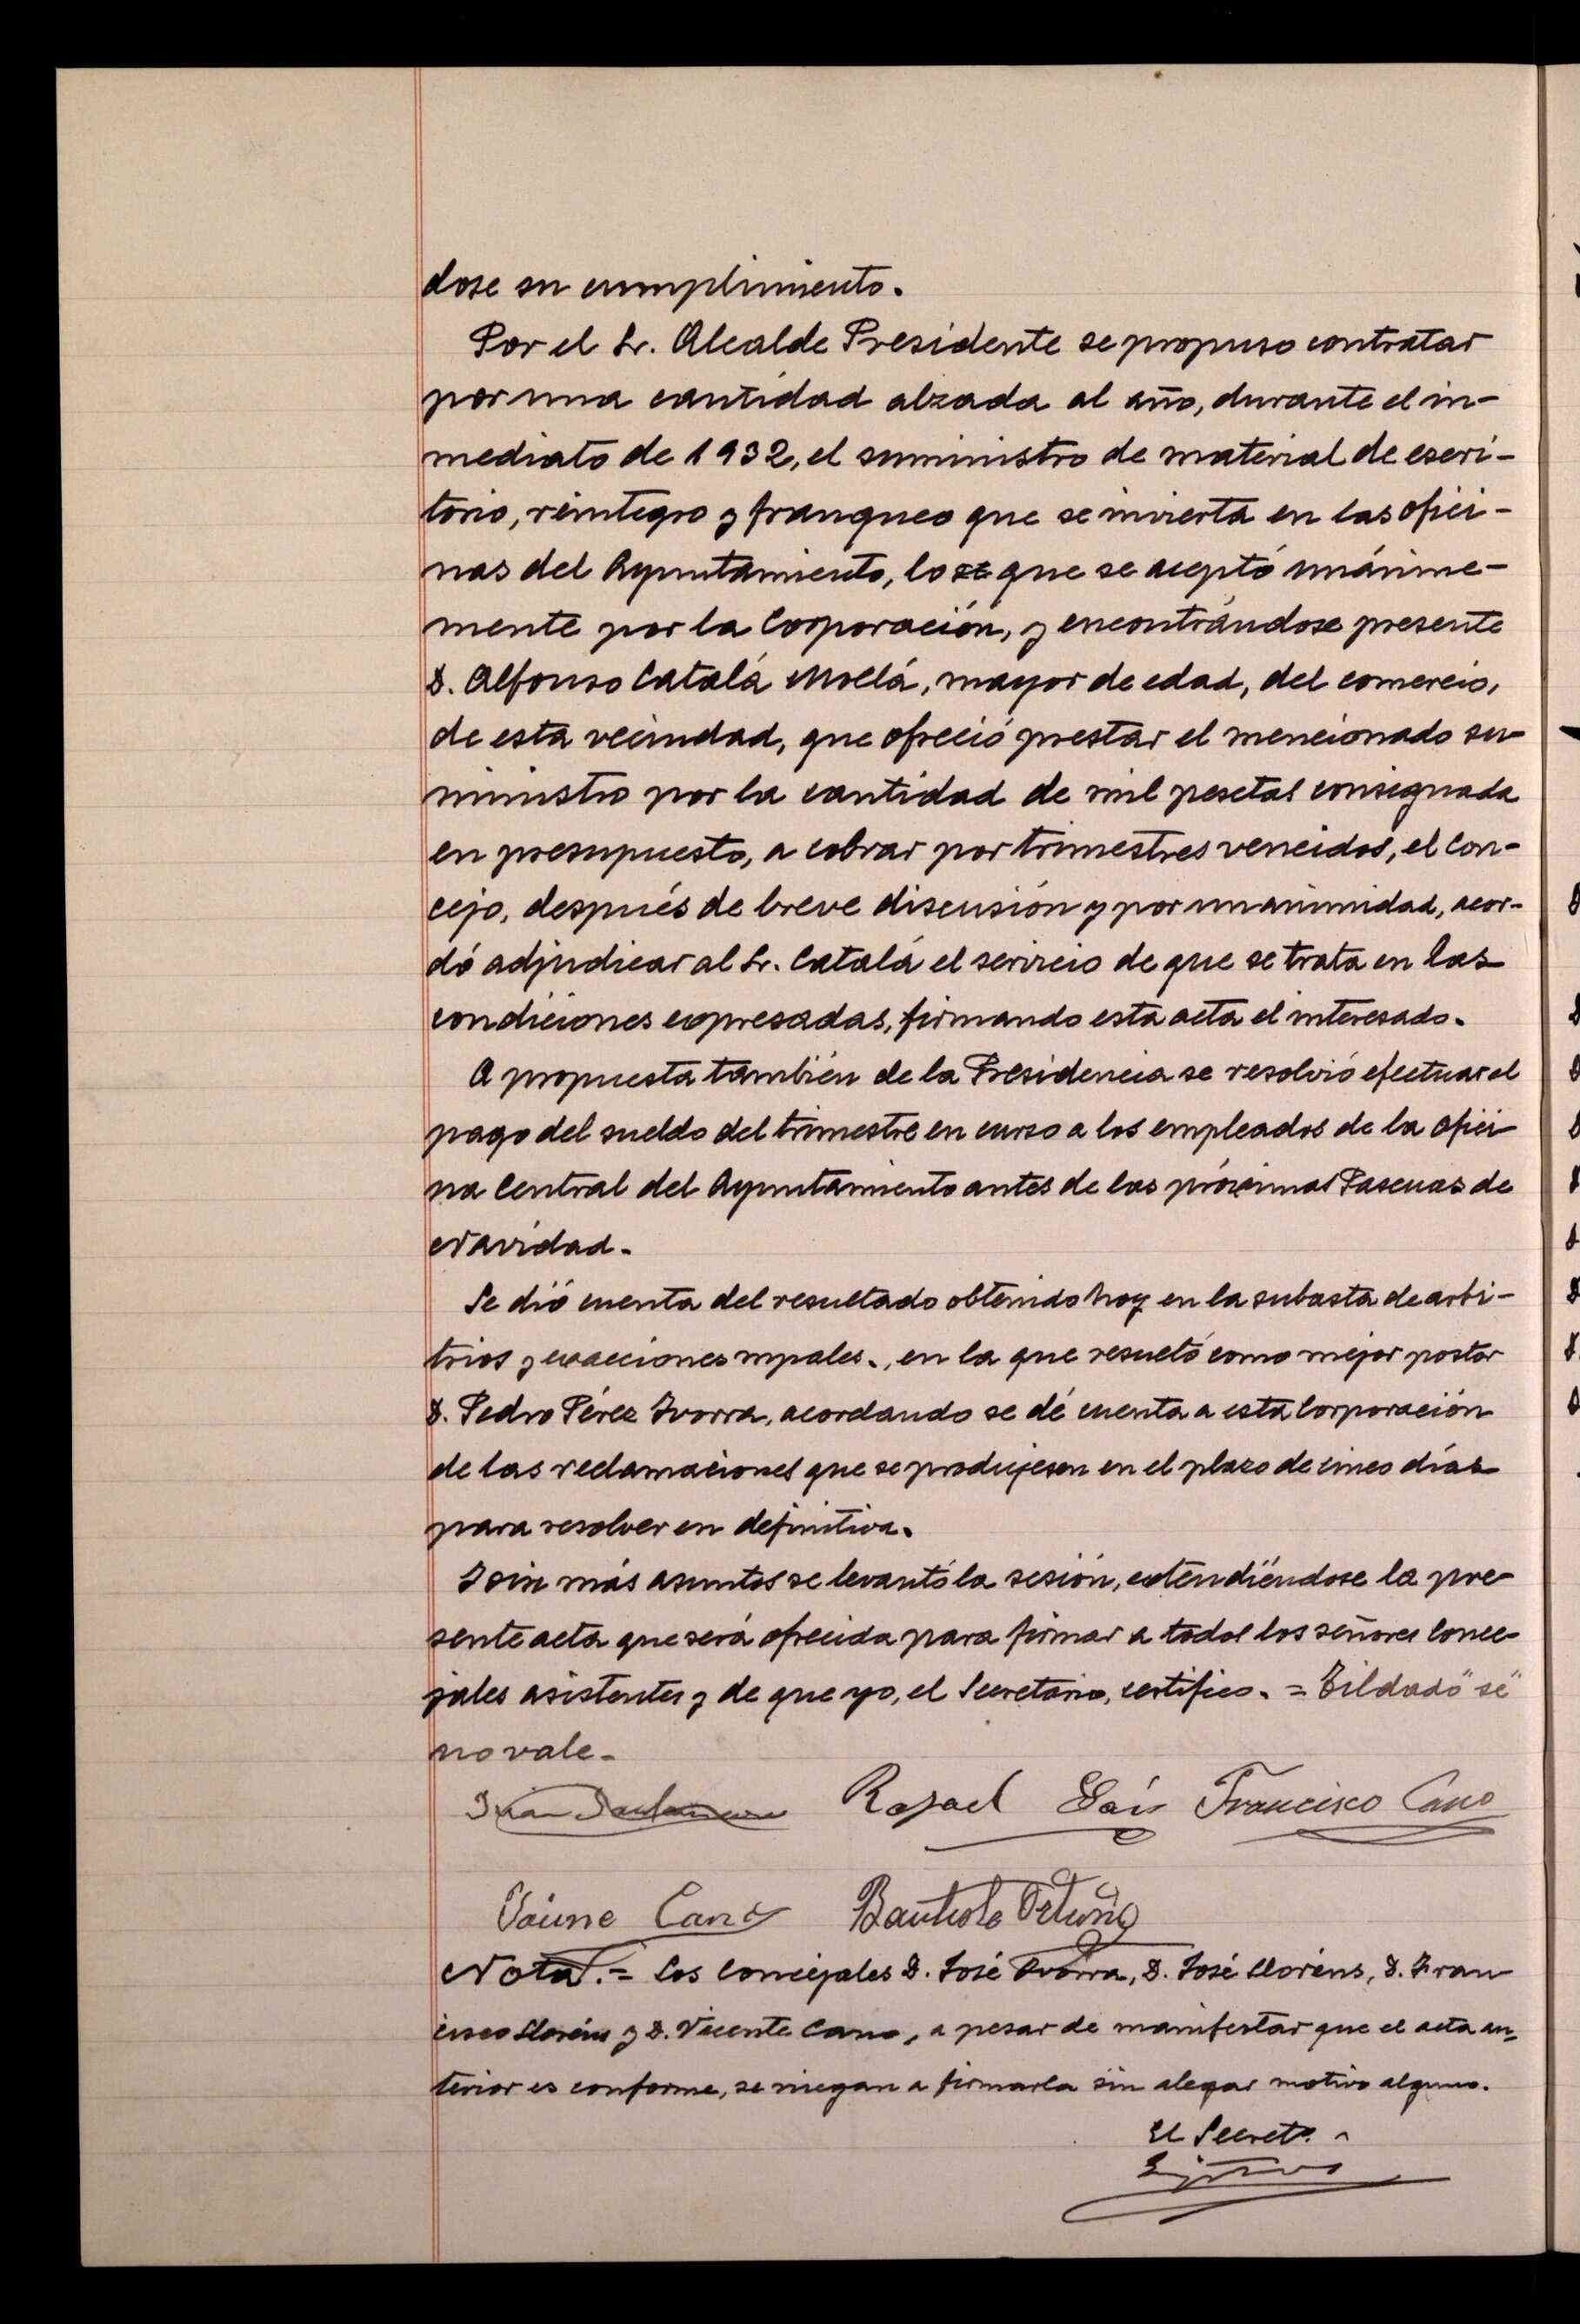 dose su cumplimiento.
Por el Sr. Alcalde Presidente se propuso contratar
por una cantidad alzada al año, durante el in-
mediato de 1932, el suministro de material de escri-
torio, reintegro y franqueo que se invierta en las ofici-
nas del Ayuntamiento, lo se que se aceptó unánime-
mente por la Corporación, y encontrándose presente
D. Alfonso Catalá Mollá, mayor de edad, del comercio,
de esta vecindad, que ofreció prestar el mencionado su-
ministro por la cantidad de mil pesetas consignada
en presupuesto, a cobrar por trimestres vencidos, el Con-
cejo, después de breve discusión y por unanimidad, acor-
dó adjudicar al Sr. Catalá el servicio de que se trata en las
condiciones expresadas, firmando esta acta el interesado.
A propuesta también de la Presidencia se resolvió efectuar el
pago del sueldo del trimestre en curso a los empleados de la Ofici-
na Central del Ayuntamiento antes de las próximas Pascuas de
Navidad.
Se dió cuenta del resultado obtenido hoy en la subasta de arbi-
trios y exacciones mpales., en la que resultó como mejor postor
D. Pedro Pérez Ivorra, acordando se dé cuenta a esta Corporación
de las reclamaciones que se produjesen en el plazo de cinco días
para resolver en definitiva.
Y sin más asuntos se levantó la sesión, extendiéndose la pre-
sente acta que será ofrecida para firmar a todos los señores Conce-
jales asistentes y de que yo, el Secretario, certifico. = Tildado "se"
no vale.
Juan Rafael Francisco Cano
Jaime Cano Bautista Ortuño
Nota. = Los Concejales D. José Ivorra, D. José Lloréns, D. Fran-
cisco Lloréns y D. Vicente Cano, a pesar de manifestar que el acta an-
terior es conforme, se niegan a firmarla sin alegar motivo alguno.
El Secretº.